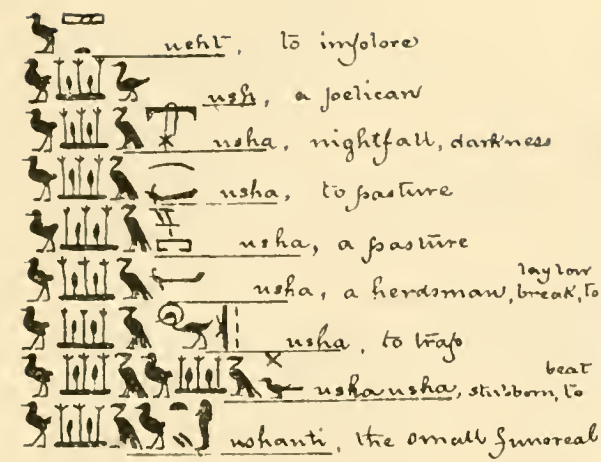 usht, to implore
ush, a pelican
usha, nightfall, darkness
usha, to pasture
usha, a pasture
usha, a herdsman, break, to lay low
usha, to trap
ushausha, stubborn, to beat
ushanti, the small funereal